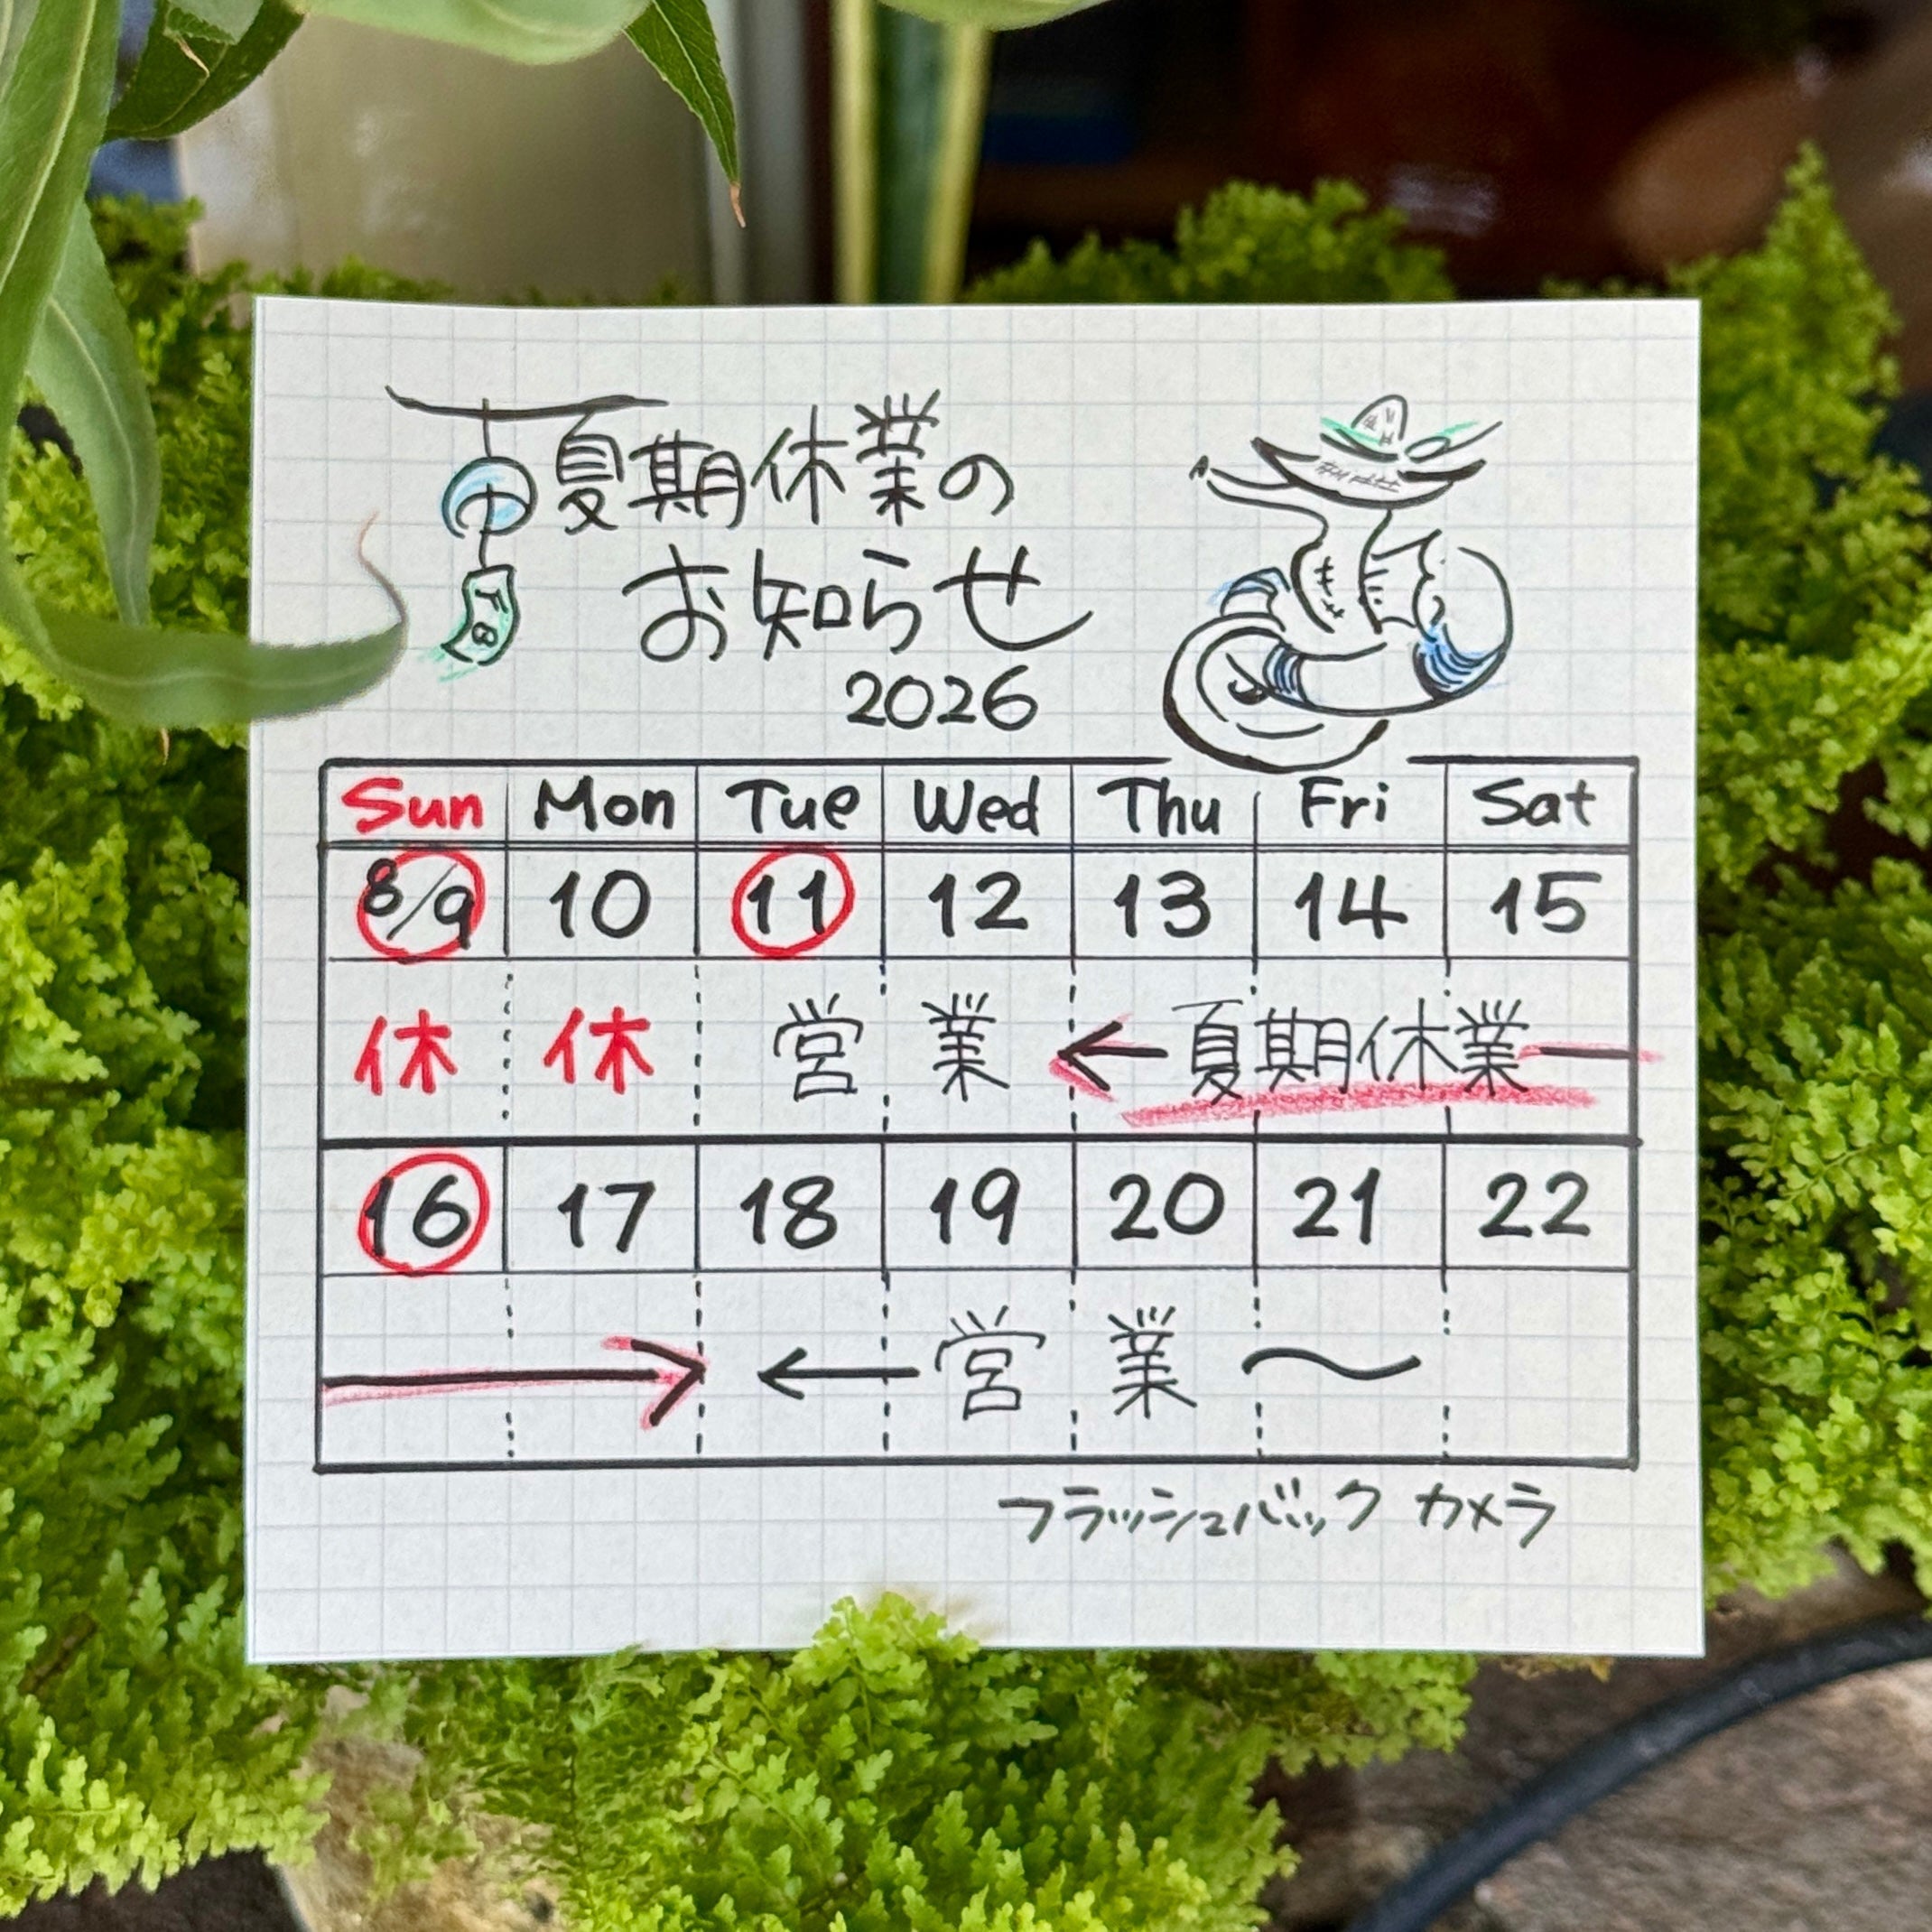 夏期休業の
お知らせ
2026
Sun Mon Tue Wed Thu Fri Sat
8/9 10 11 12 13 14 15
休 休 営業 ←夏期休業―
16 17 18 19 20 21 22
→ ←営業〜
フラッシュバック カメラ